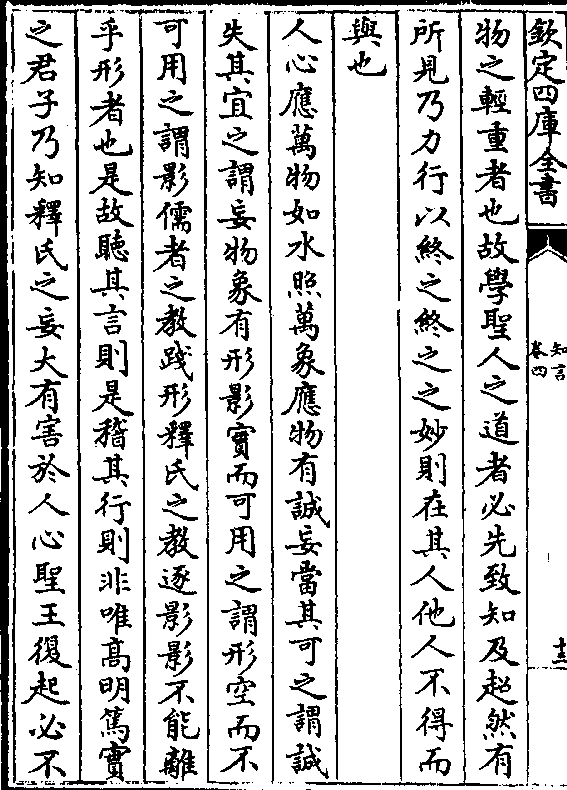 欽定四庫全書
知言
卷四
十三
物之輕重者也故學聖人之道者必先致知及超然有
所見乃力行以終之終之之妙則在其人他人不得而
與也
人心應萬物如水照萬象應物有誠妄當其可之謂誠
失其宜之謂妄物象有形影實而可用之謂形空而不
可用之謂影儒者之教踐形釋氏之教逐影影不能離
乎形者也是故聽其言則是稽其行則非唯高明篤實
之君子乃知釋氏之妄大有害於人心聖王復起必不